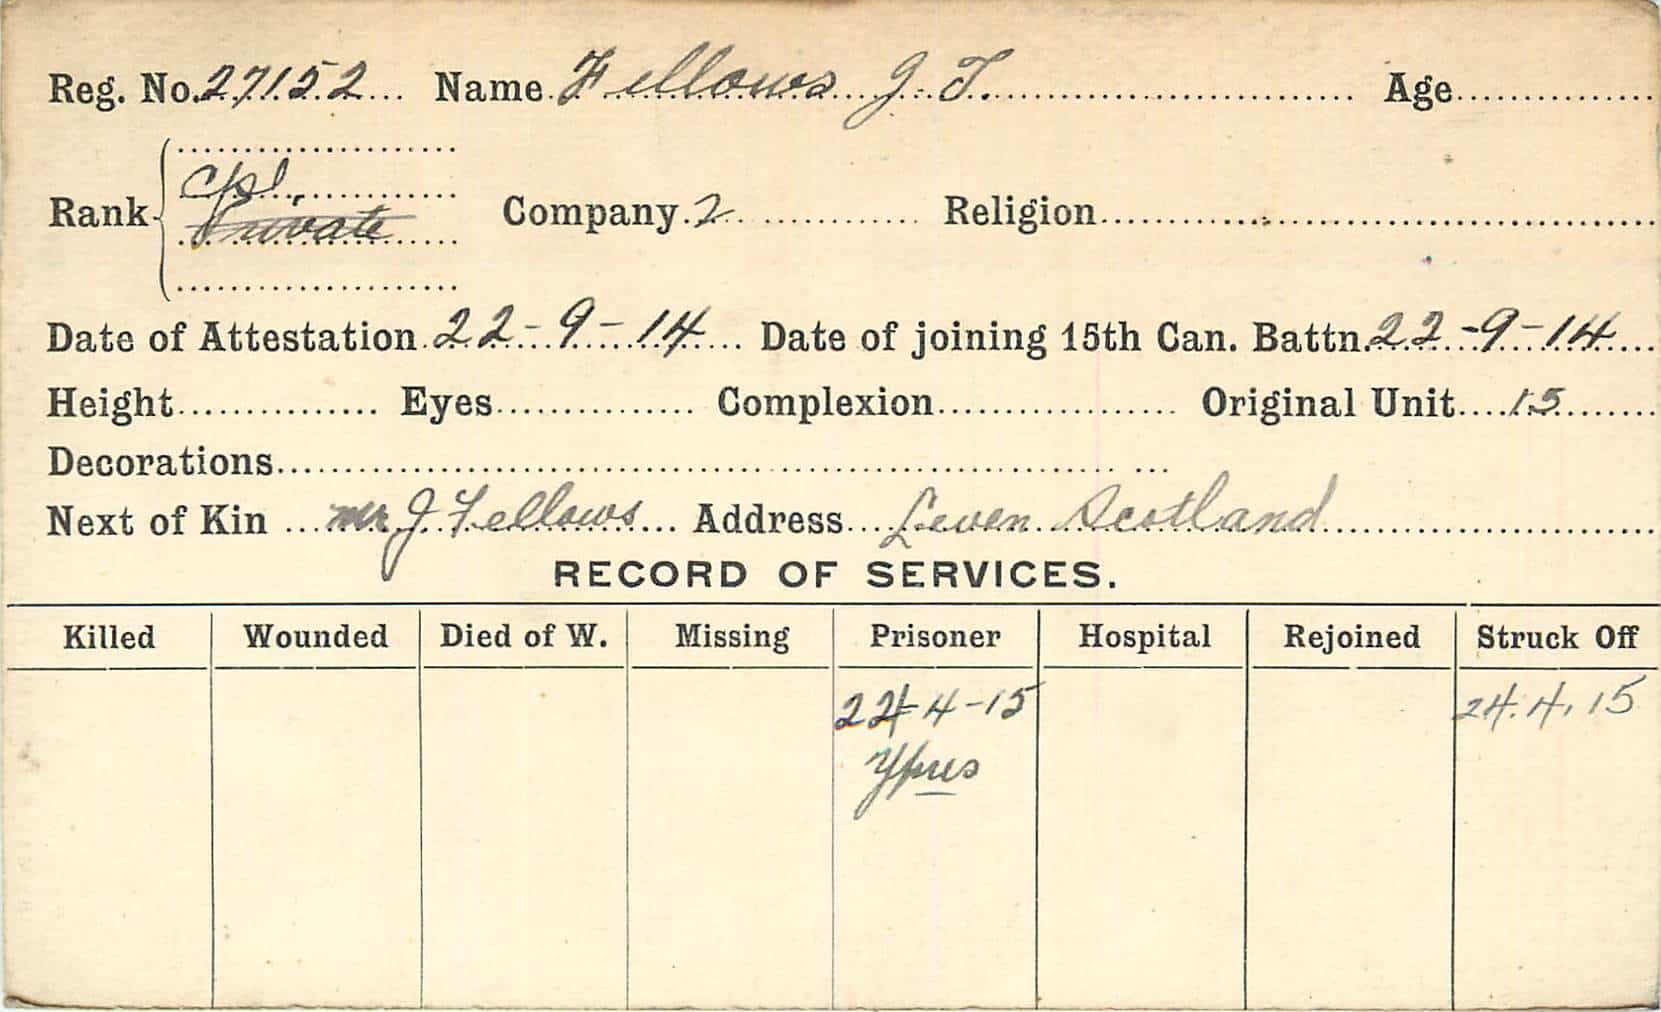 Reg. No. 27152 Name Fellows J. T. Age
Cpl.
Rank Private Company 2 Religion
Date of Attestation 22-9-14 Date of joining 15th Can. Battn. 22-9-14
Height Eyes Complexion Original Unit 15
Decorations
Next of Kin Mr J. Fellows Address Leven Scotland
RECORD OF SERVICES.
Killed Wounded Died of W. Missing Prisoner Hospital Rejoined Struck Off
24-4-15 24.4.15
Ypres